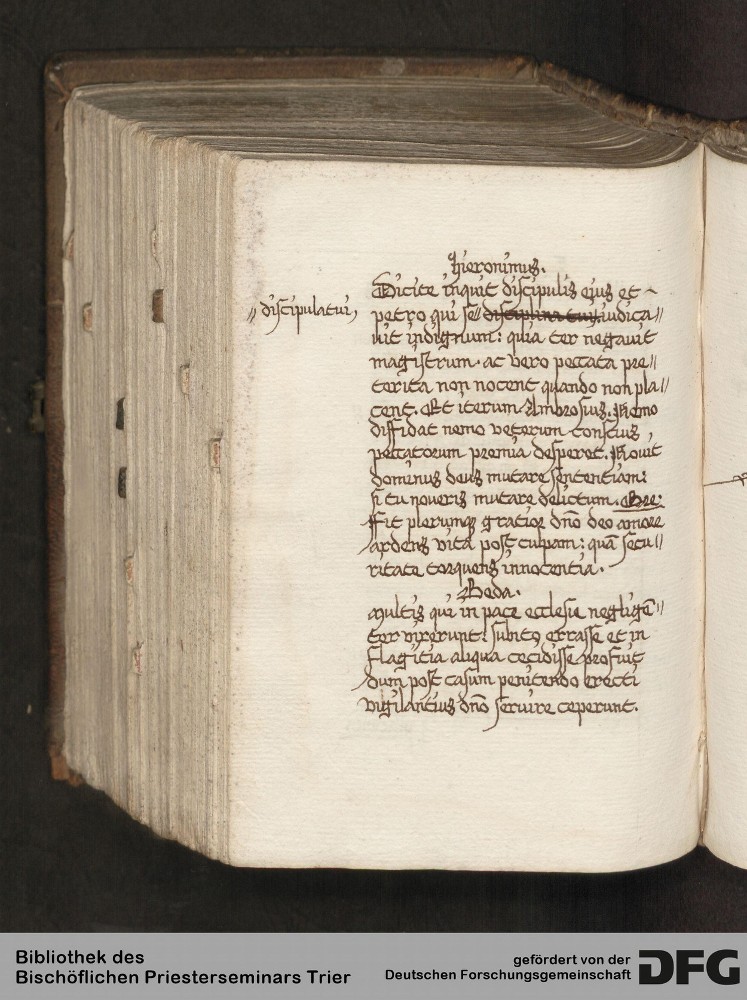 Hieronimus.
Dicite inquit discipulis ejus et
// discipulatui,
petro qui se // disciplina tuis iudica
uit indignum: quia ter negauit
magistrum. at vero peccata pre//
terita non nocent quando non pla//
cent. Et iterum Ambrosius. Nemo
diffidat nemo veterum conscius,
peccatorum premia desperet. Nouit
dominus deus mutare sententiam:
si tu noueris mutare delictum. Gre:
ffit plerumque gratior dno deo amore
ardens vita post culpam: quā secu//
ritate torquens innocentia.
Beda.
Multis qui in pace ecclesie negligē//
ter vixerunt: subito errasse et in
flagitia aliqua cecidisse profuit
dum post casum penitendo erecti
vigilantius dno seruire ceperunt.
Bibliothek des
Bischöflichen Priesterseminars Trier
gefördert von der
Deutschen Forschungsgemeinschaft
DFG